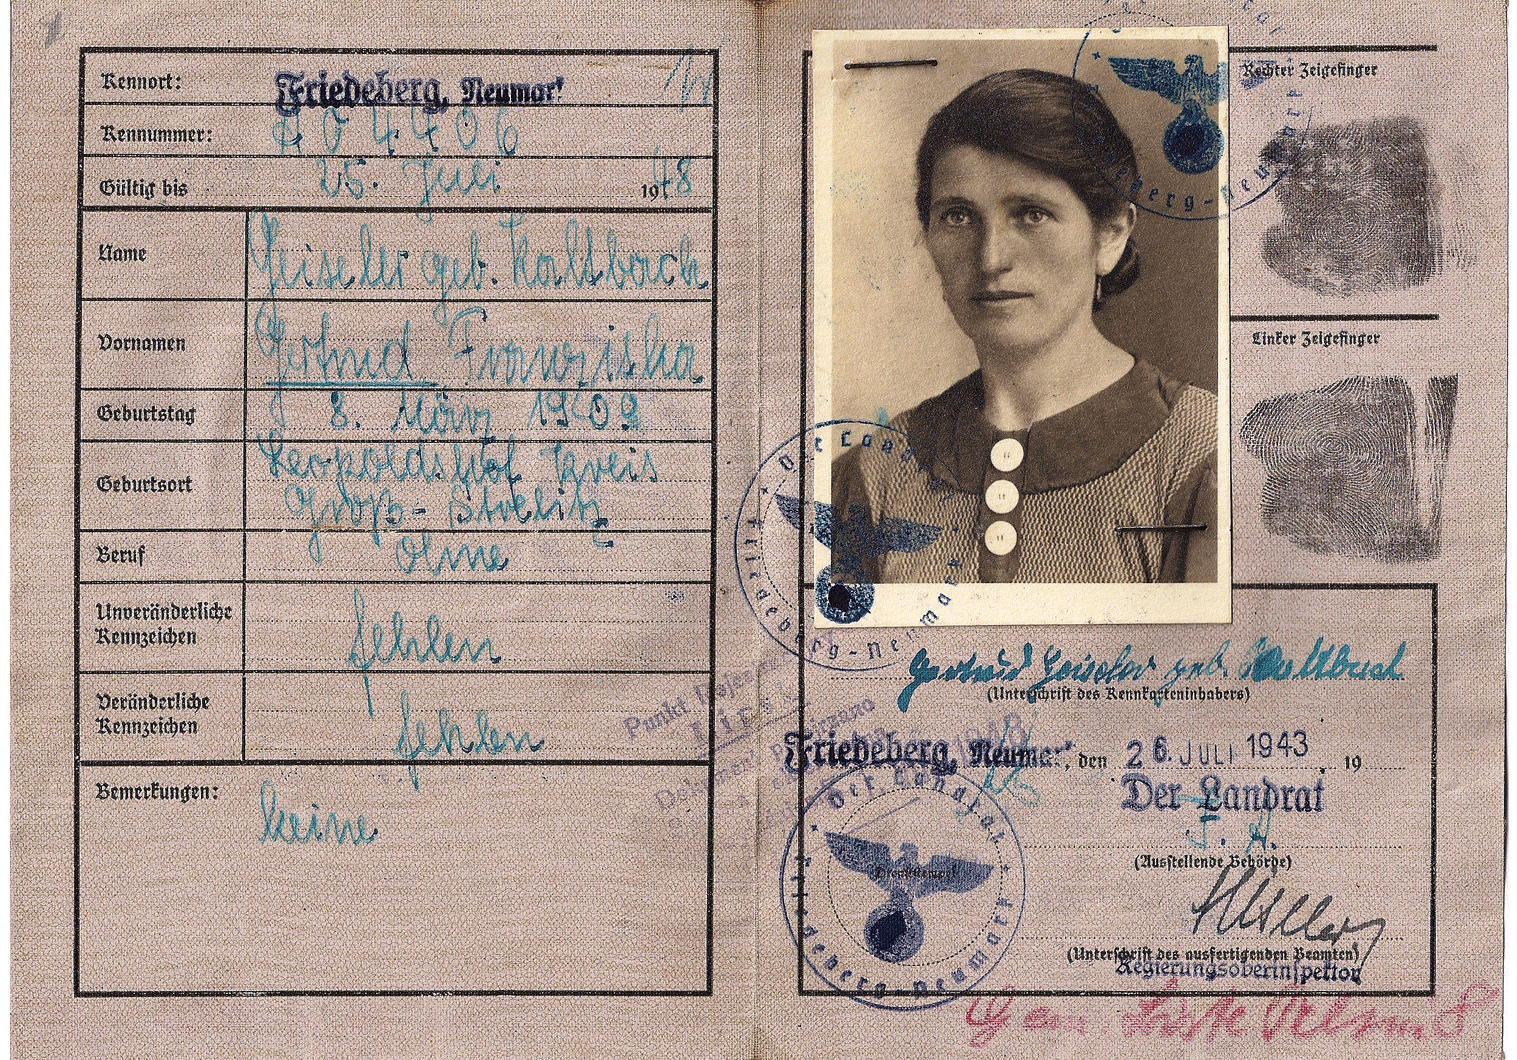 Kennort: Friedeberg, Neumark
Kennummer: A 04406
Gültig bis 25. Juli 1948
Name Geiseler geb. Kaltbach
Vornamen Gertrud Franziska
Geburtstag 8. März 1909
Geburtsort Leopoldshof Kreis
Groß-Strelitz
Beruf ohne
Unveränderliche
Kennzeichen fehlen
Veränderliche
Kennzeichen fehlen
Bemerkungen: keine
Punkt
Rechter Zeigefinger
Linker Zeigefinger
Der Landrat
Friedeberg-Neumark
Der Landrat
Friedeberg-Neumark
Gertrud Geiseler geb. Kaltbach
(Unterschrift des Kennkarteninhabers)
Friedeberg, Neumark, den 26. JULI 1943 19
Der Landrat
J. A.
(Ausstellende Behörde)
Der Landrat
Dienststempel
Friedeberg-Neumark
(Unterschrift des ausfertigenden Beamten)
Regierungsoberinspektor